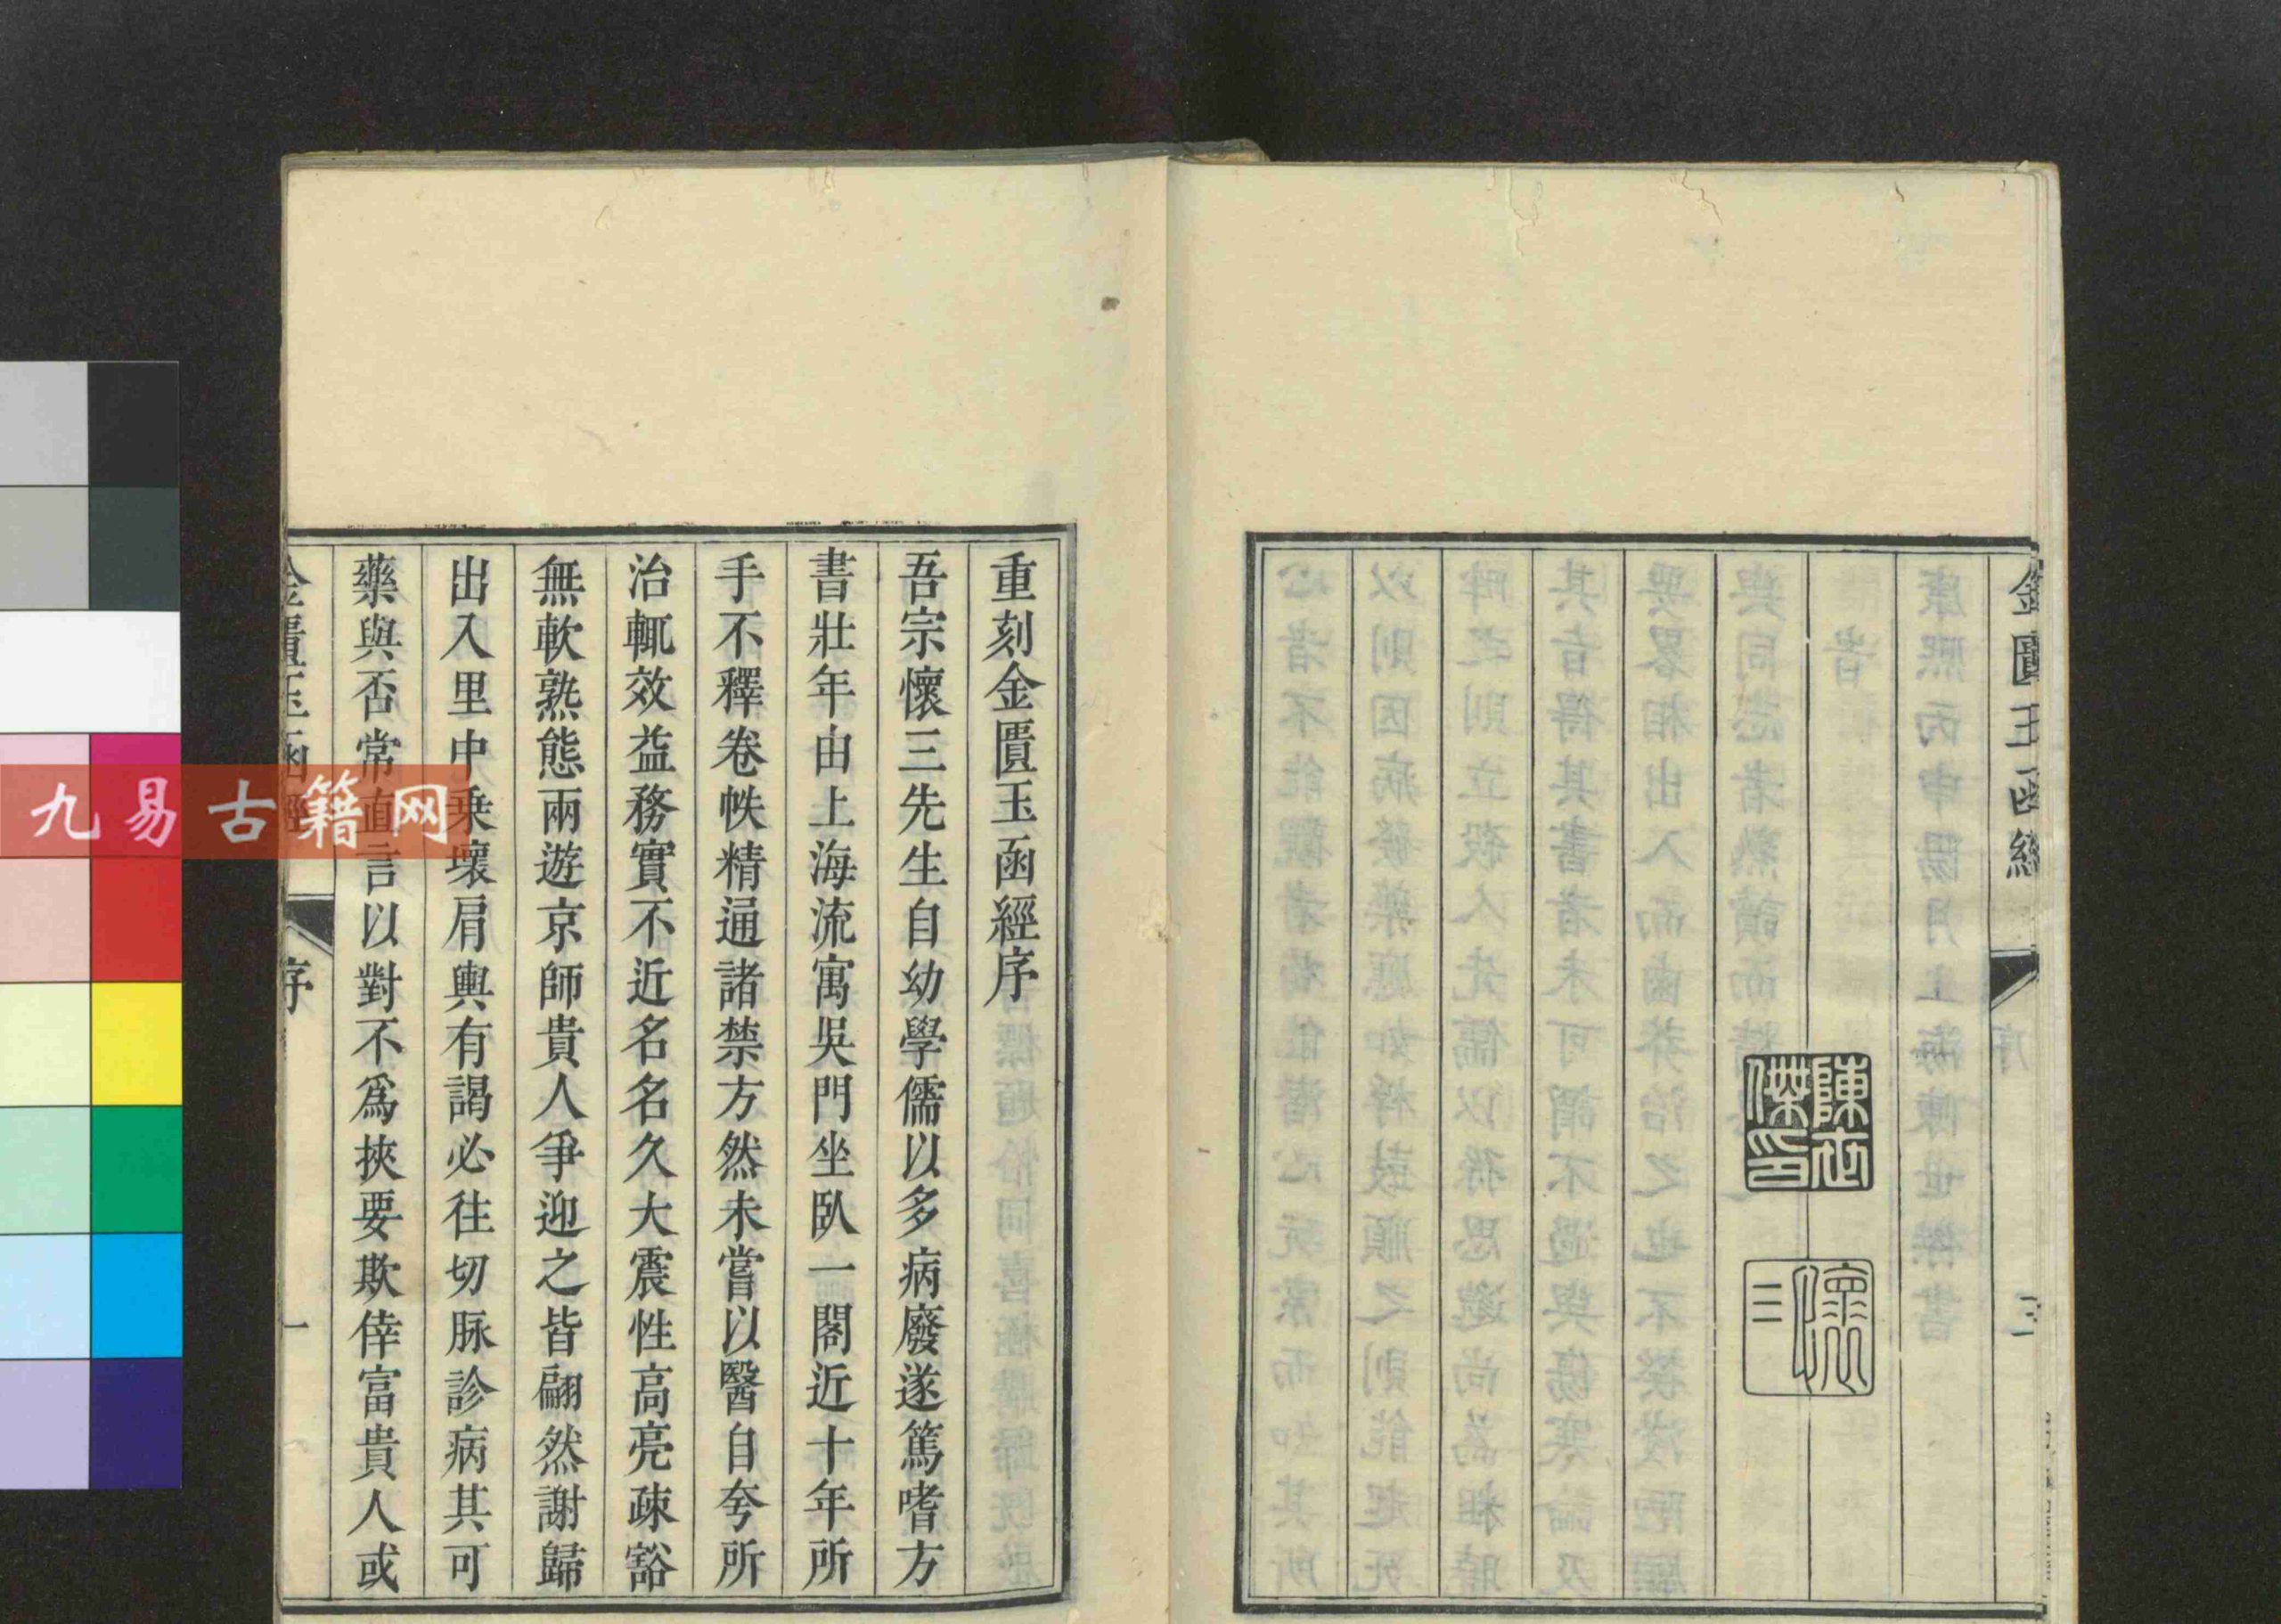 金匱玉函經
序
三
陳世傑印
懷三
重刻金匱玉函經序
吾宗懷三先生自幼學儒以多病廢遂篤嗜方
書壯年由上海流寓吳門坐臥一閣近十年所
手不釋卷帙精通諸禁方然未嘗以醫自夸所
治輒效益務實不近名名久大震性高亮疎豁
無軟熟態兩遊京師貴人爭迎之皆翩然謝歸
出入里中乗壞肩輿有謁必往切脉診病其可
藥與否常直言以對不爲挾要欺倖富貴人或
金匱玉函經
序
一
九易古籍网